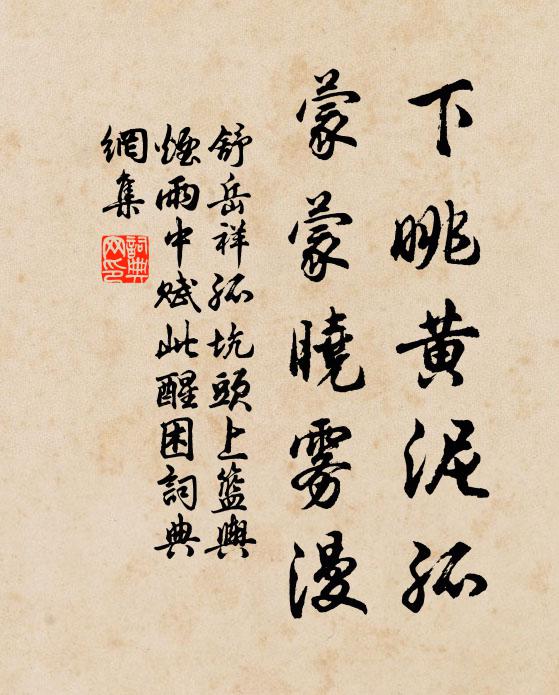 下眺黄泥孤
蒙蒙曉雾漫
舒岳祥孤坑頭上籃輿
煙雨中赋此醒困詞典
網集
詞典网印